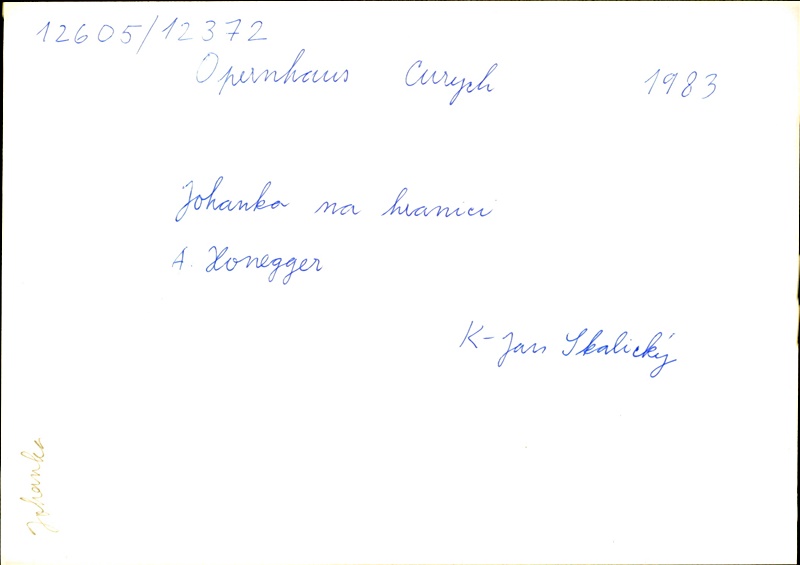 12605/12372
Opernhaus Curych 1983
Johanka na hranici
A. Honegger
K-Jan Skalický
Johanka